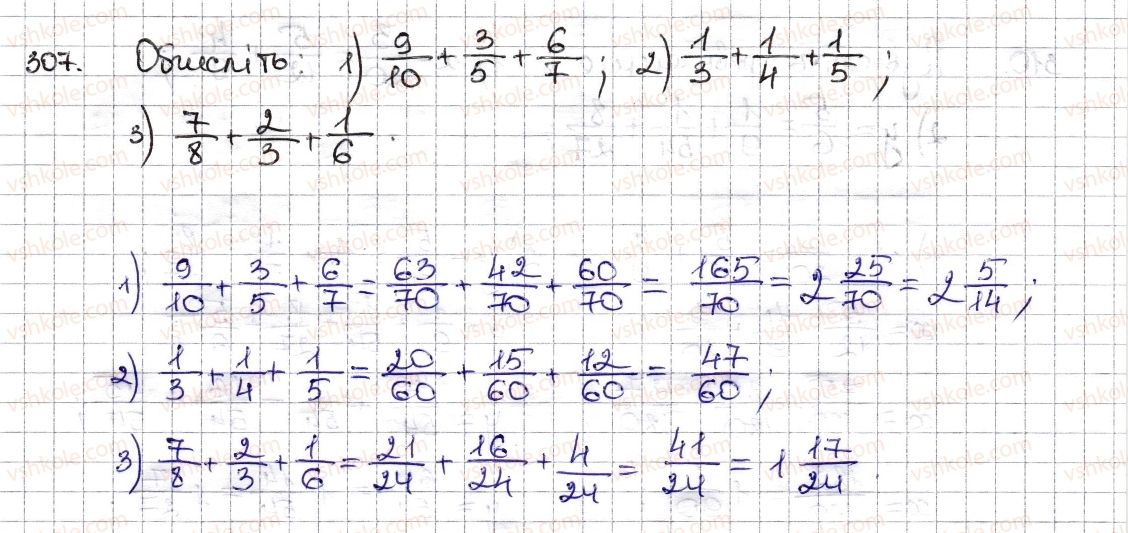 307. Обчисліть: 1) 9/10 + 3/5 + 6/7 ; 2) 1/3 + 1/4 + 1/5 ;
3) 7/8 + 2/3 + 1/6 .
1) 9/10 + 3/5 + 6/7 = 63/70 + 42/70 + 60/70 = 165/70 = 2 25/70 = 2 5/14 ;
2) 1/3 + 1/4 + 1/5 = 20/60 + 15/60 + 12/60 = 47/60 ;
3) 7/8 + 2/3 + 1/6 = 21/24 + 16/24 + 4/24 = 41/24 = 1 17/24 .